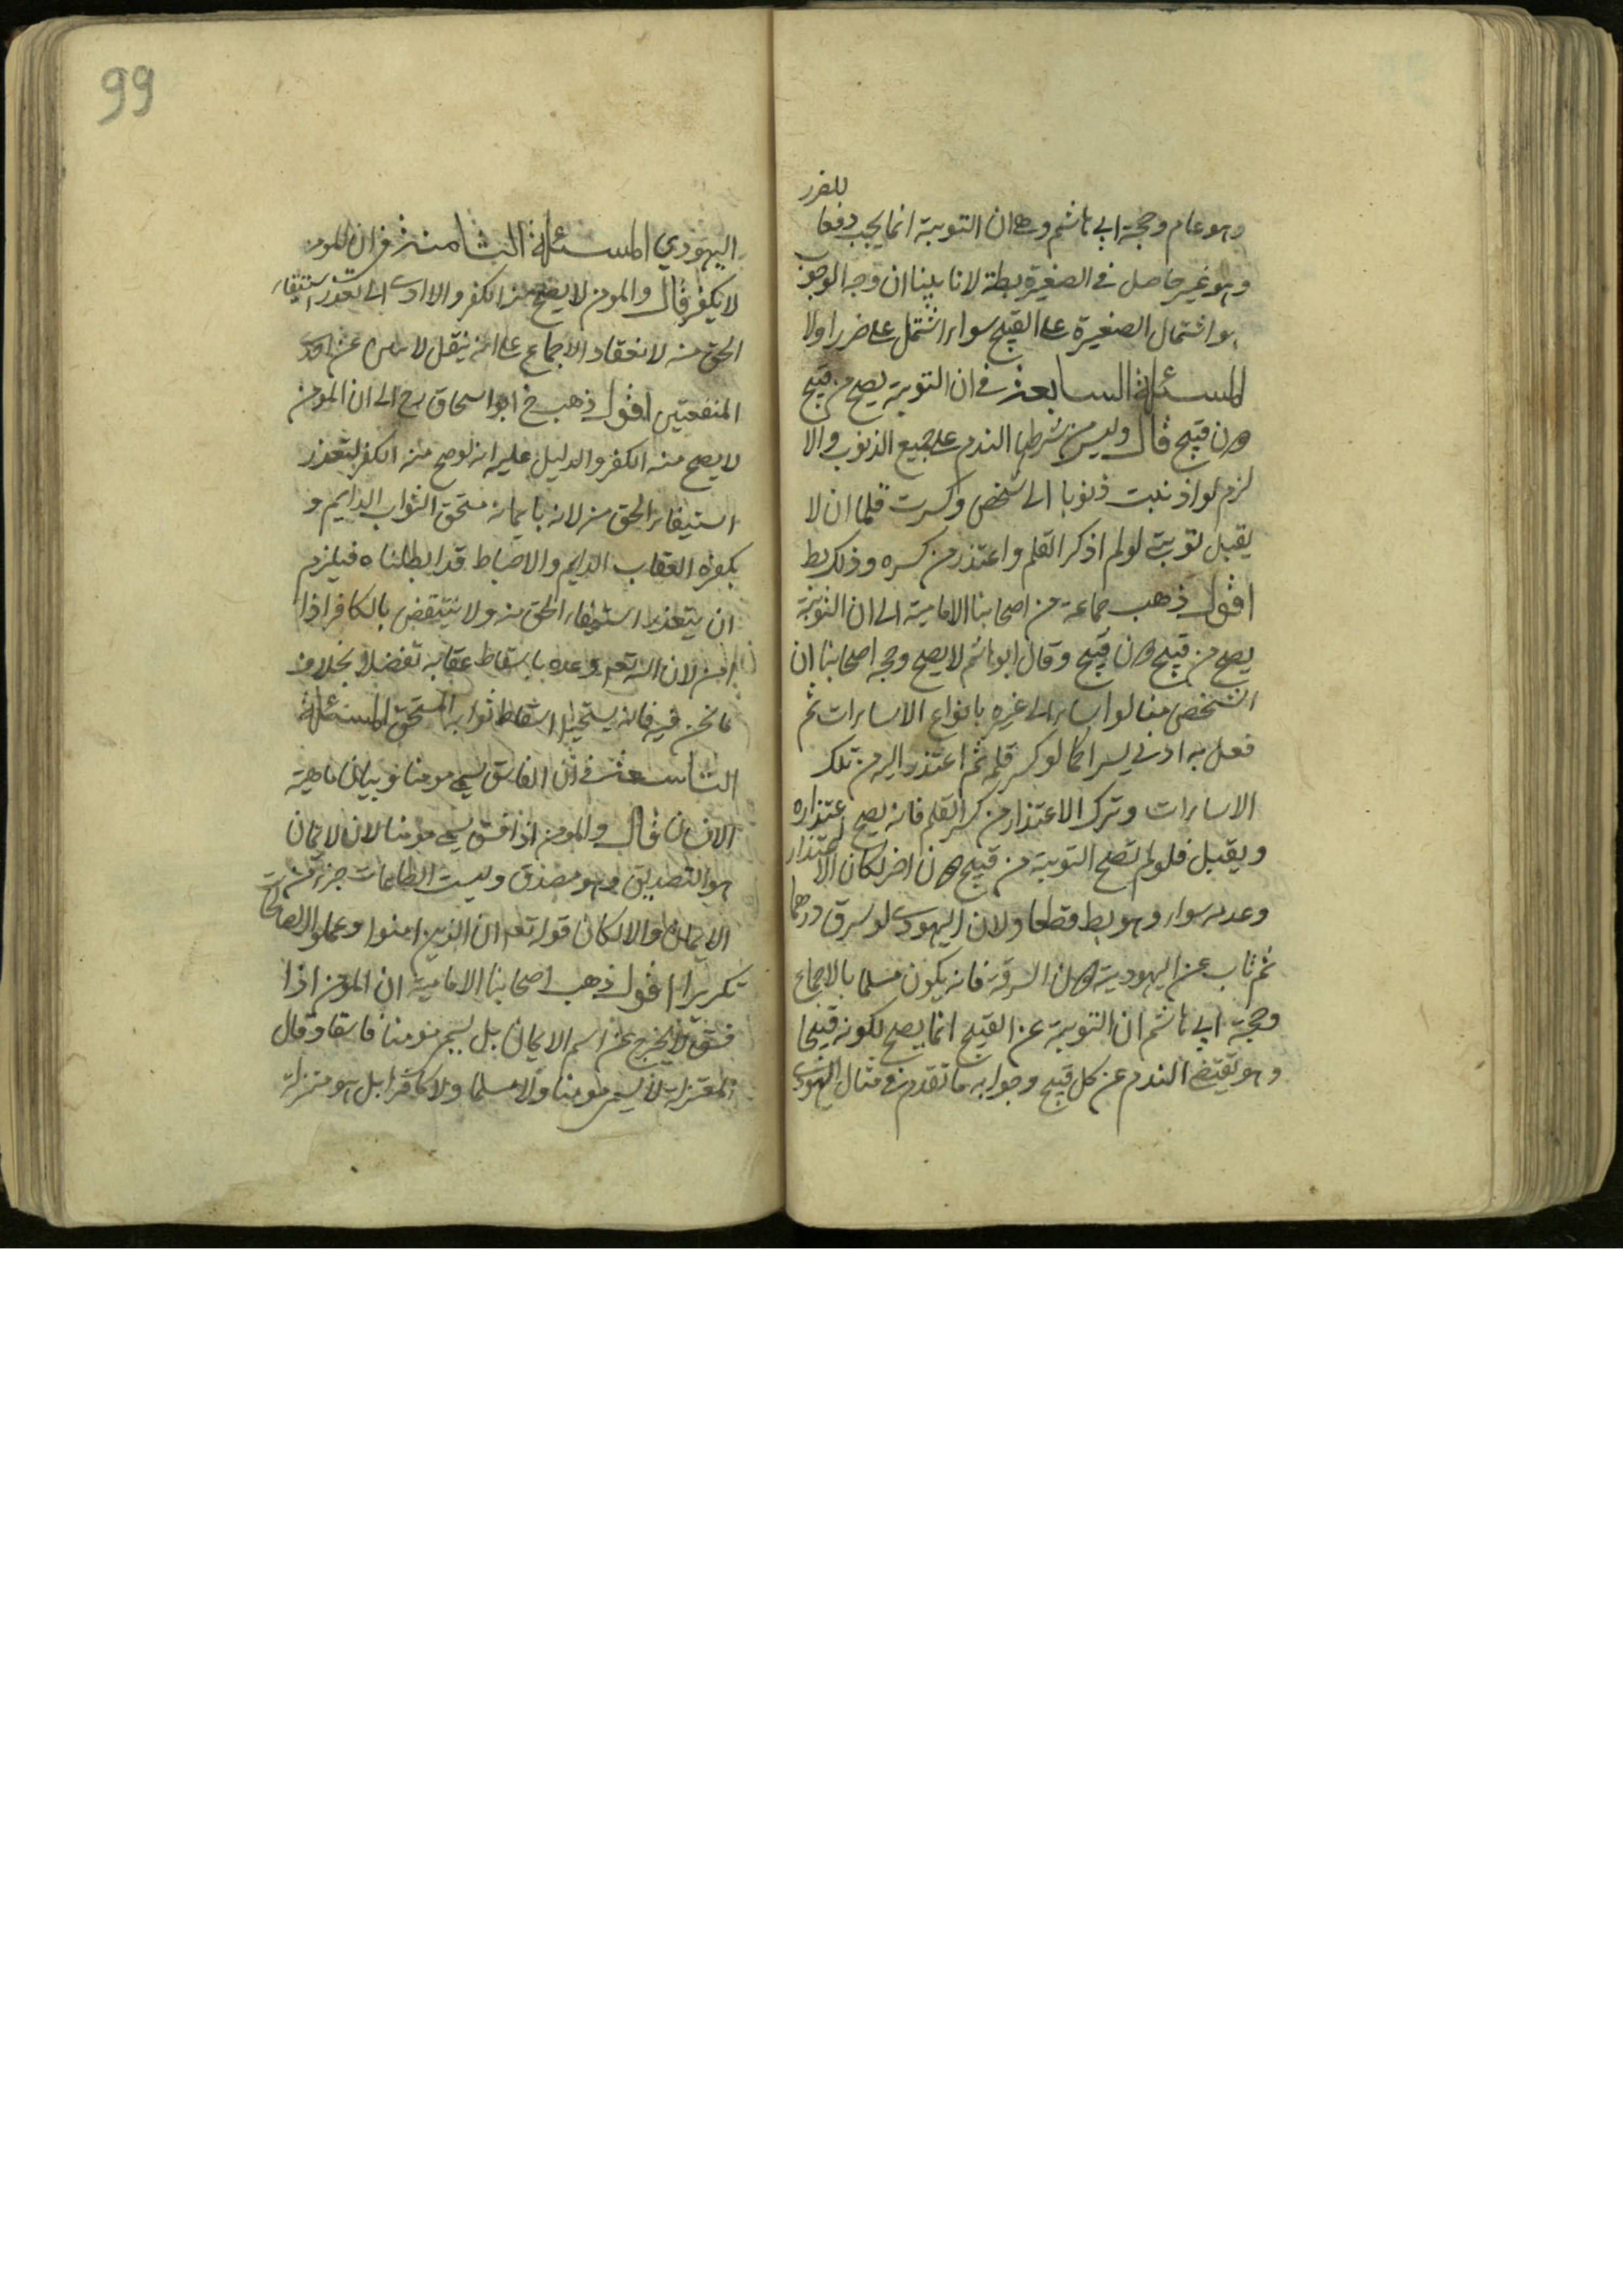 وهو عام وحجة ابي هاشم وهي ان التوبة انما يجب دفعا للضرر
وهو غير حاصل في الصغيرة بط لانا بينا ان وجه الوجوب
هو اشتمال الصغيرة على القبح سواء اشتمل على ضرر اولا
المسئلة السابعة في ان التوبة يصح من قبيح
دون قبيح قال وليس من شرطها الندم على جميع الذنوب والا
لزم لو اذنبت ذنوبا الى شخص وكسرت قلما ان لا
يقبل توبتي لو لم اذكر القلم واعتذر من كسره وذلك بط
اقول ذهب جماعة من اصحابنا الامامية الى ان التوبة
يصح من قبيح دون قبيح وقال ابو هاشم لا يصح وحجة اصحابنا ان
الشخص منا لو اساء الى غيره بانواع الاساءات ثم
فعل به ادنى يسير كما لو كسر قلمه ثم اعتذر اليه من تلك
الاساءات وترك الاعتذار من كسر القلم فانه يصح اعتذاره
ويقبل فلو لم تصح التوبة من قبيح دون اخر لكان الاعتذار
وعدمه سواء وهو بط قطعا ولان اليهودي لو سرق درهما
ثم تاب عن اليهودية دون السرقة فانه يكون مسلما بالاجماع
وحجة ابي هاشم ان التوبة عن القبيح انما يصح لكونه قبيحا
وهو يقتضي الندم عن كل قبيح وجوابه ما تقدم في مثال اليهودي
99
اليهودي المسئلة الثامنة في ان المومن
لا يكفر قال والمومن لا يصح منه الكفر والا ادى الى تعذر استيفاء
الحق منه لانعقاد الاجماع على انه ينقل عن احدى
المنفعتين اقول ذهب خ ابو اسحاق رح الى ان المومن
لا يصح منه الكفر والدليل عليه انه لو صح منه الكفر لتعذر
استيفاء الحق منه لانه بايمانه مستحق الثواب الدايم و
بكفره العقاب الدايم والاحباط قد ابطلناه فيلزم
ان يتعذر استيفاء الحق منه ولا ينتقض بالكافر اذا
امن لان الله تعم وعده باسقاط عقابه تفضلا بخلاف
ما نحن فيه فانه يستحيل اسقاط ثوابه المستحق المسئلة
التاسعة في ان الفاسق يسمى مومنا وبيان ماهية
الايمان قال والمومن اذا فسق يسمى مومنا لان الايمان
هو التصديق وهو مصدق وليست الطاعات جزءا من
الايمان والا لكان قوله تعم ان الذين امنوا وعملوا الصالحات
تكريرا اقول ذهب اصحابنا الامامية ان المومن اذا
فسق لا يخرج عن اسم الايمان بل يسمى مومنا فاسقا وقال
المعتزلة لا يسمى مومنا ولا مسلما ولا كافرا بل هو منزلة